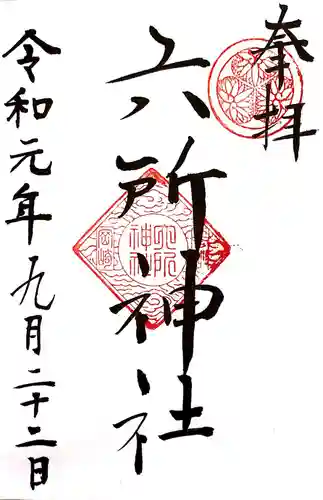 奉拝
六所神社
令和元年九月二十二日
岡崎
六所
神社